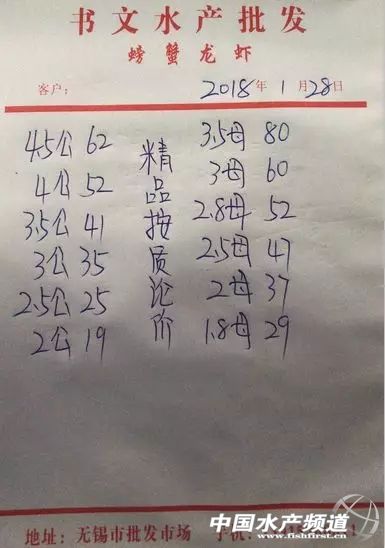 书文水产批发
螃蟹龙虾
客户： 2018年1月28日
4.5公 62
4公 52
3.5公 41
3公 35
2.5公 25
2公 19
精品按质论价
3.5母 80
3母 60
2.8母 52
2.5母 47
2母 37
1.8母 29
中国水产频道
www.fishfirst.cn
地址：无锡市批发市场 手机：